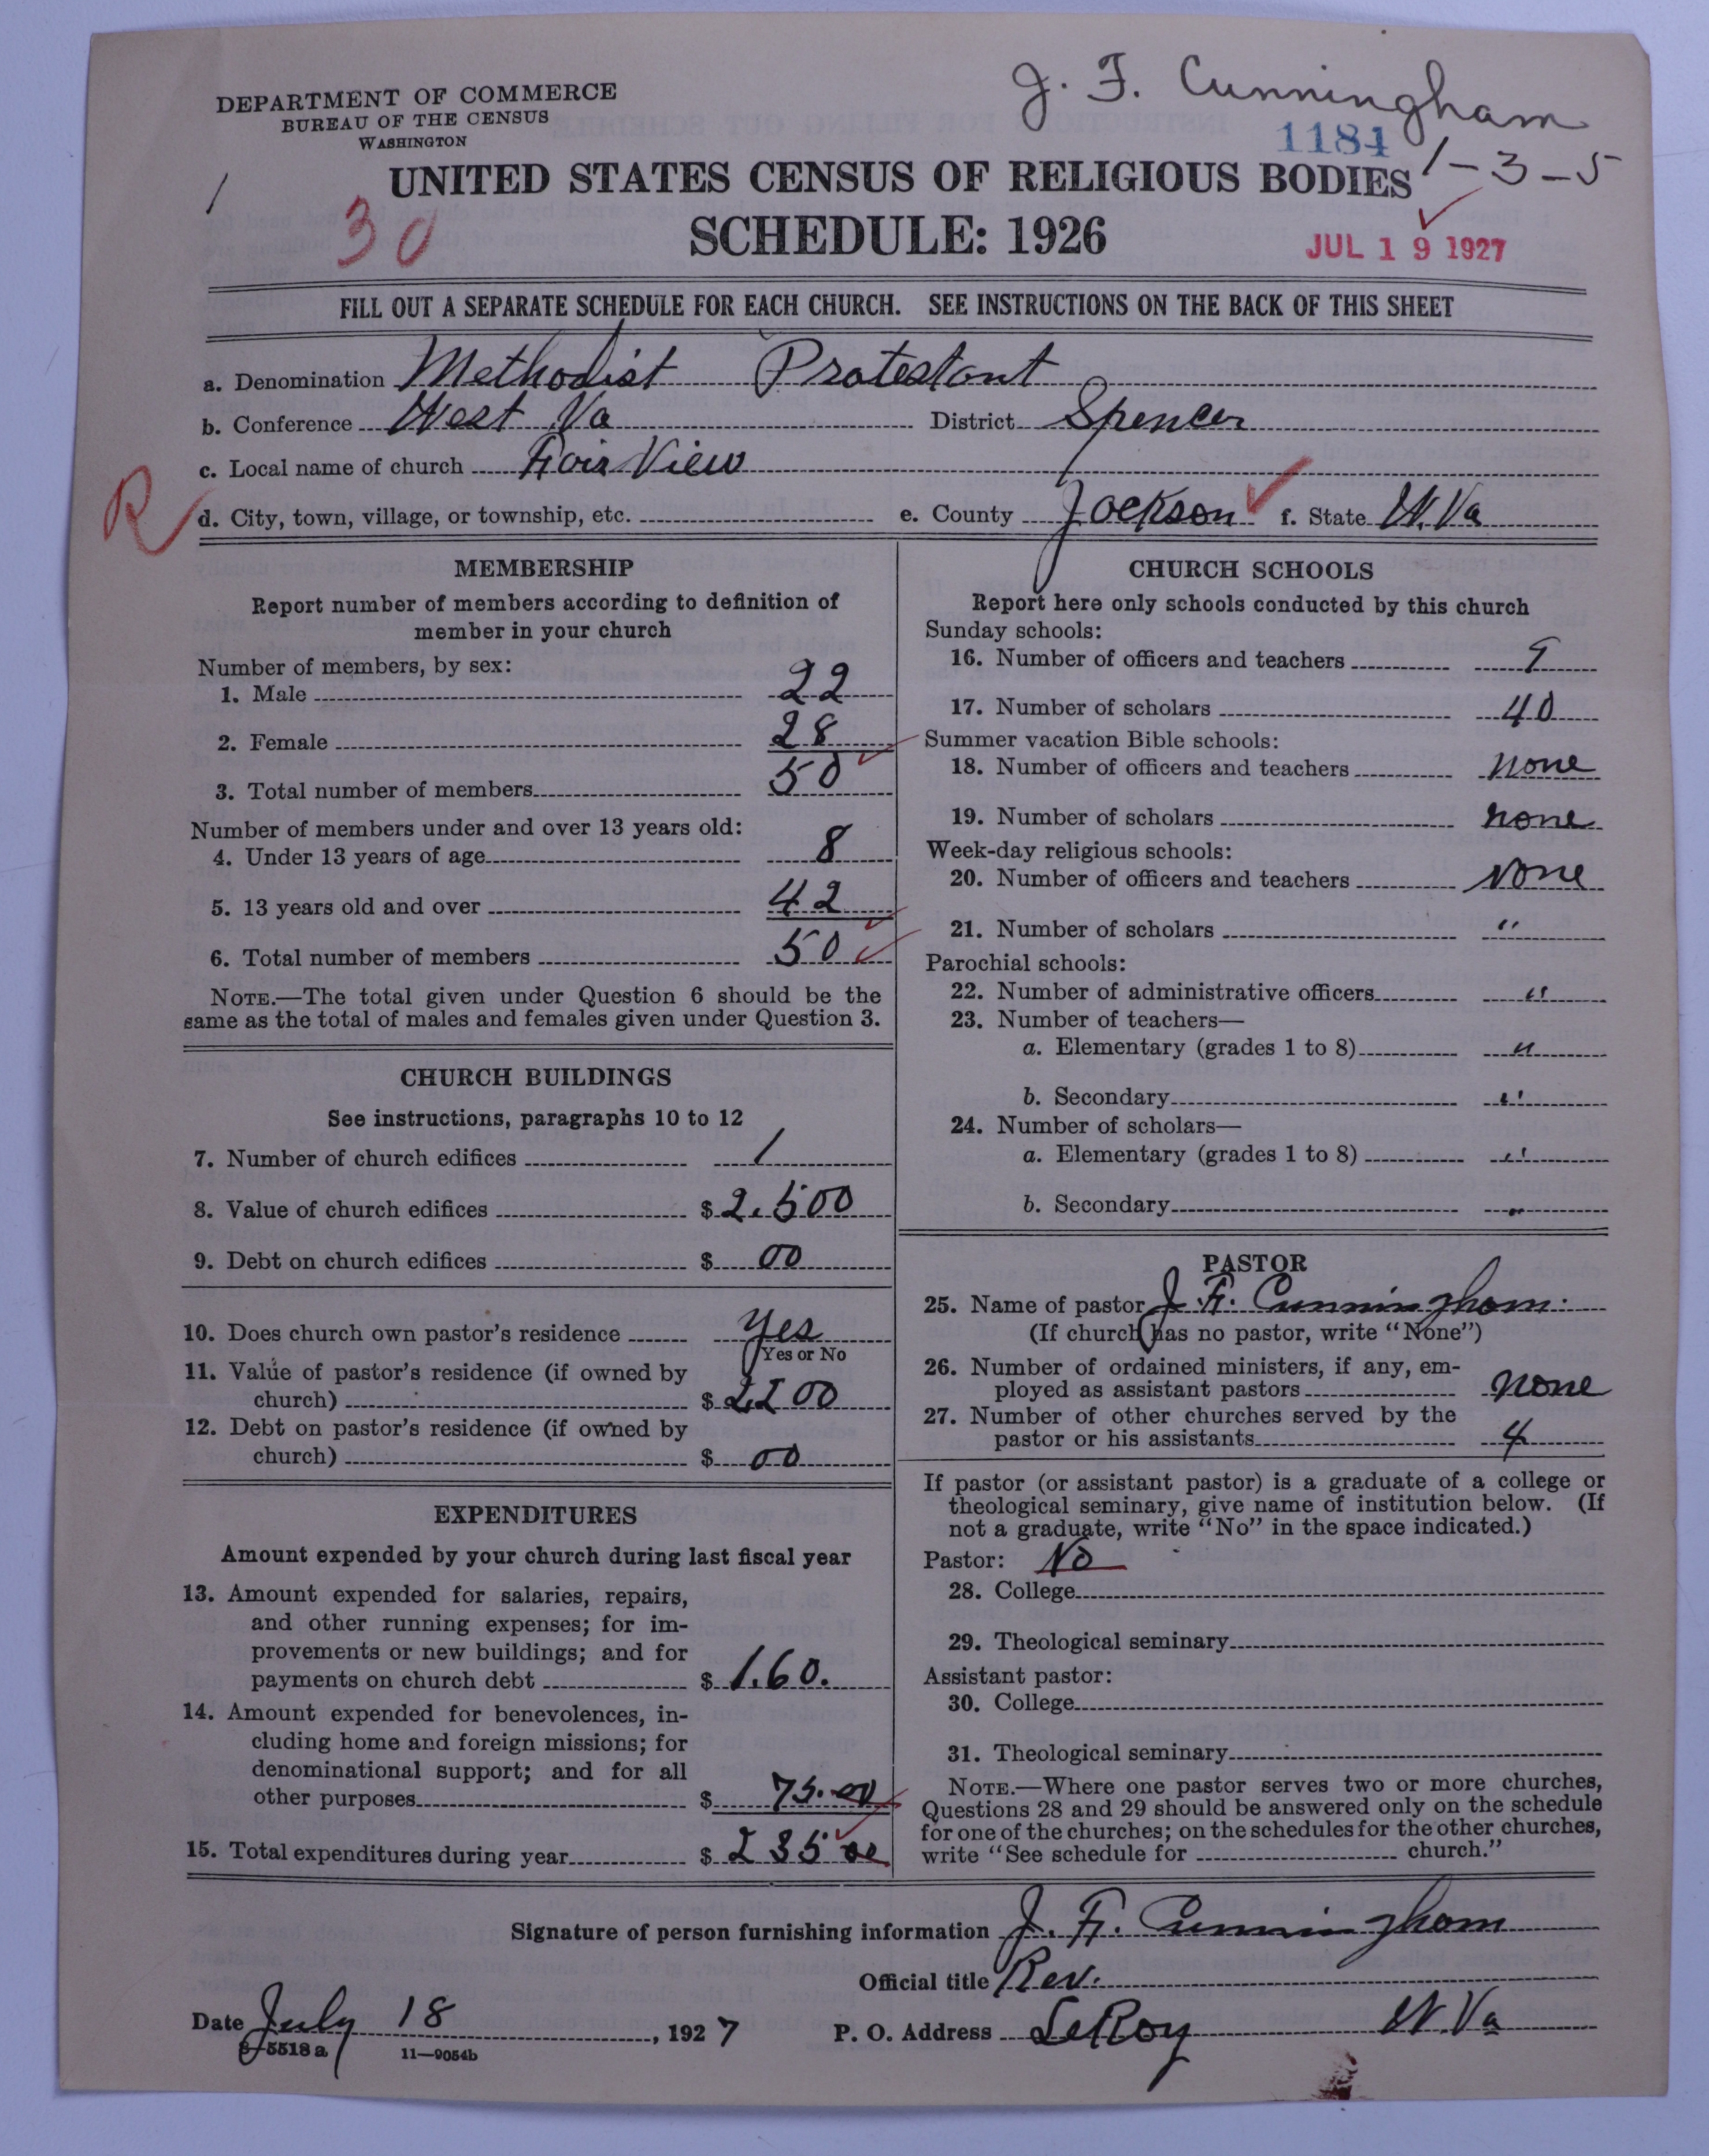 J. F. Cunningham
DEPARTMENT OF COMMERCE
BUREAU OF THE CENSUS
WASHINGTON
1184
1-3-5
UNITED STATES CENSUS OF RELIGIOUS BODIES
/
30
SCHEDULE: 1926
JUL 19 1927
FILL OUT A SEPARATE SCHEDULE FOR EACH CHURCH. SEE INSTRUCTIONS ON THE BACK OF THIS SHEET
a. Denomination Methodist Protestant
b. Conference West Va District Spencer
c. Local name of church Fair View
R
d. City, town, village, or township, etc. e. County Jackson f. State W. Va
MEMBERSHIP
Report number of members according to definition of
member in your church
Number of members, by sex:
1. Male 22
2. Female 28
3. Total number of members 50
Number of members under and over 13 years old:
4. Under 13 years of age 8
5. 13 years old and over 42
6. Total number of members 50
NOTE.—The total given under Question 6 should be the
same as the total of males and females given under Question 3.
CHURCH BUILDINGS
See instructions, paragraphs 10 to 12
7. Number of church edifices 1
8. Value of church edifices $ 2.500
9. Debt on church edifices $ 00
10. Does church own pastor's residence Yes
Yes or No
11. Value of pastor's residence (if owned by
church) $
12. Debt on pastor's residence (if owned by
church) $ 00
EXPENDITURES
Amount expended by your church during last fiscal year
13. Amount expended for salaries, repairs,
and other running expenses; for im-
provements or new buildings; and for
payments on church debt $ 1.60.
14. Amount expended for benevolences, in-
cluding home and foreign missions; for
denominational support; and for all
other purposes $ 75.00
15. Total expenditures during year $ 235 00
CHURCH SCHOOLS
Report here only schools conducted by this church
Sunday schools:
16. Number of officers and teachers 9
17. Number of scholars 40
Summer vacation Bible schools:
18. Number of officers and teachers none
19. Number of scholars none
Week-day religious schools:
20. Number of officers and teachers none
21. Number of scholars "
Parochial schools:
22. Number of administrative officers "
23. Number of teachers—
a. Elementary (grades 1 to 8) "
b. Secondary "
24. Number of scholars—
a. Elementary (grades 1 to 8) "
b. Secondary "
PASTOR
25. Name of pastor J. F. Cunningham.
(If church has no pastor, write "None")
26. Number of ordained ministers, if any, em-
ployed as assistant pastors none
27. Number of other churches served by the
pastor or his assistants 4
If pastor (or assistant pastor) is a graduate of a college or
theological seminary, give name of institution below. (If
not a graduate, write "No" in the space indicated.)
Pastor: No
28. College
29. Theological seminary
Assistant pastor:
30. College
31. Theological seminary
NOTE.—Where one pastor serves two or more churches,
Questions 28 and 29 should be answered only on the schedule
for one of the churches; on the schedules for the other churches,
write "See schedule for church."
Signature of person furnishing information J. F. Cunningham
Official title Rev.
Date July 18, 1927 P. O. Address LeRoy W. Va
8-5518a 11—9054b